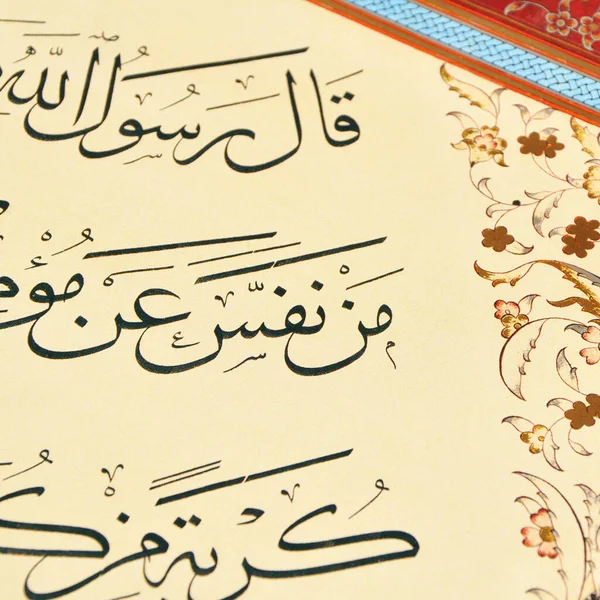 قَالَ رَسُولُ اللّٰه
مَنْ نَفَّسَ عَنْ مُؤْمِ
كُرْبَةً مِنْ كُ